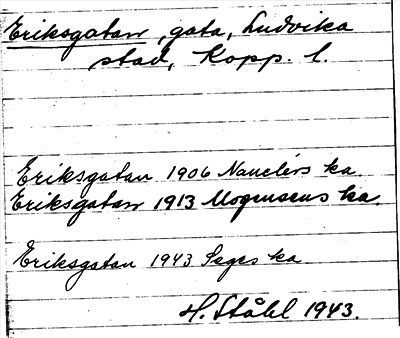 Eriksgatan, gata, Ludvika
stad, Kopp. l.
Eriksgatan 1906 Nanclérs ka
Eriksgatan 1913 Mogensens ka.
Eriksgatan 1943 Seges ka
H. Ståhl 1943.